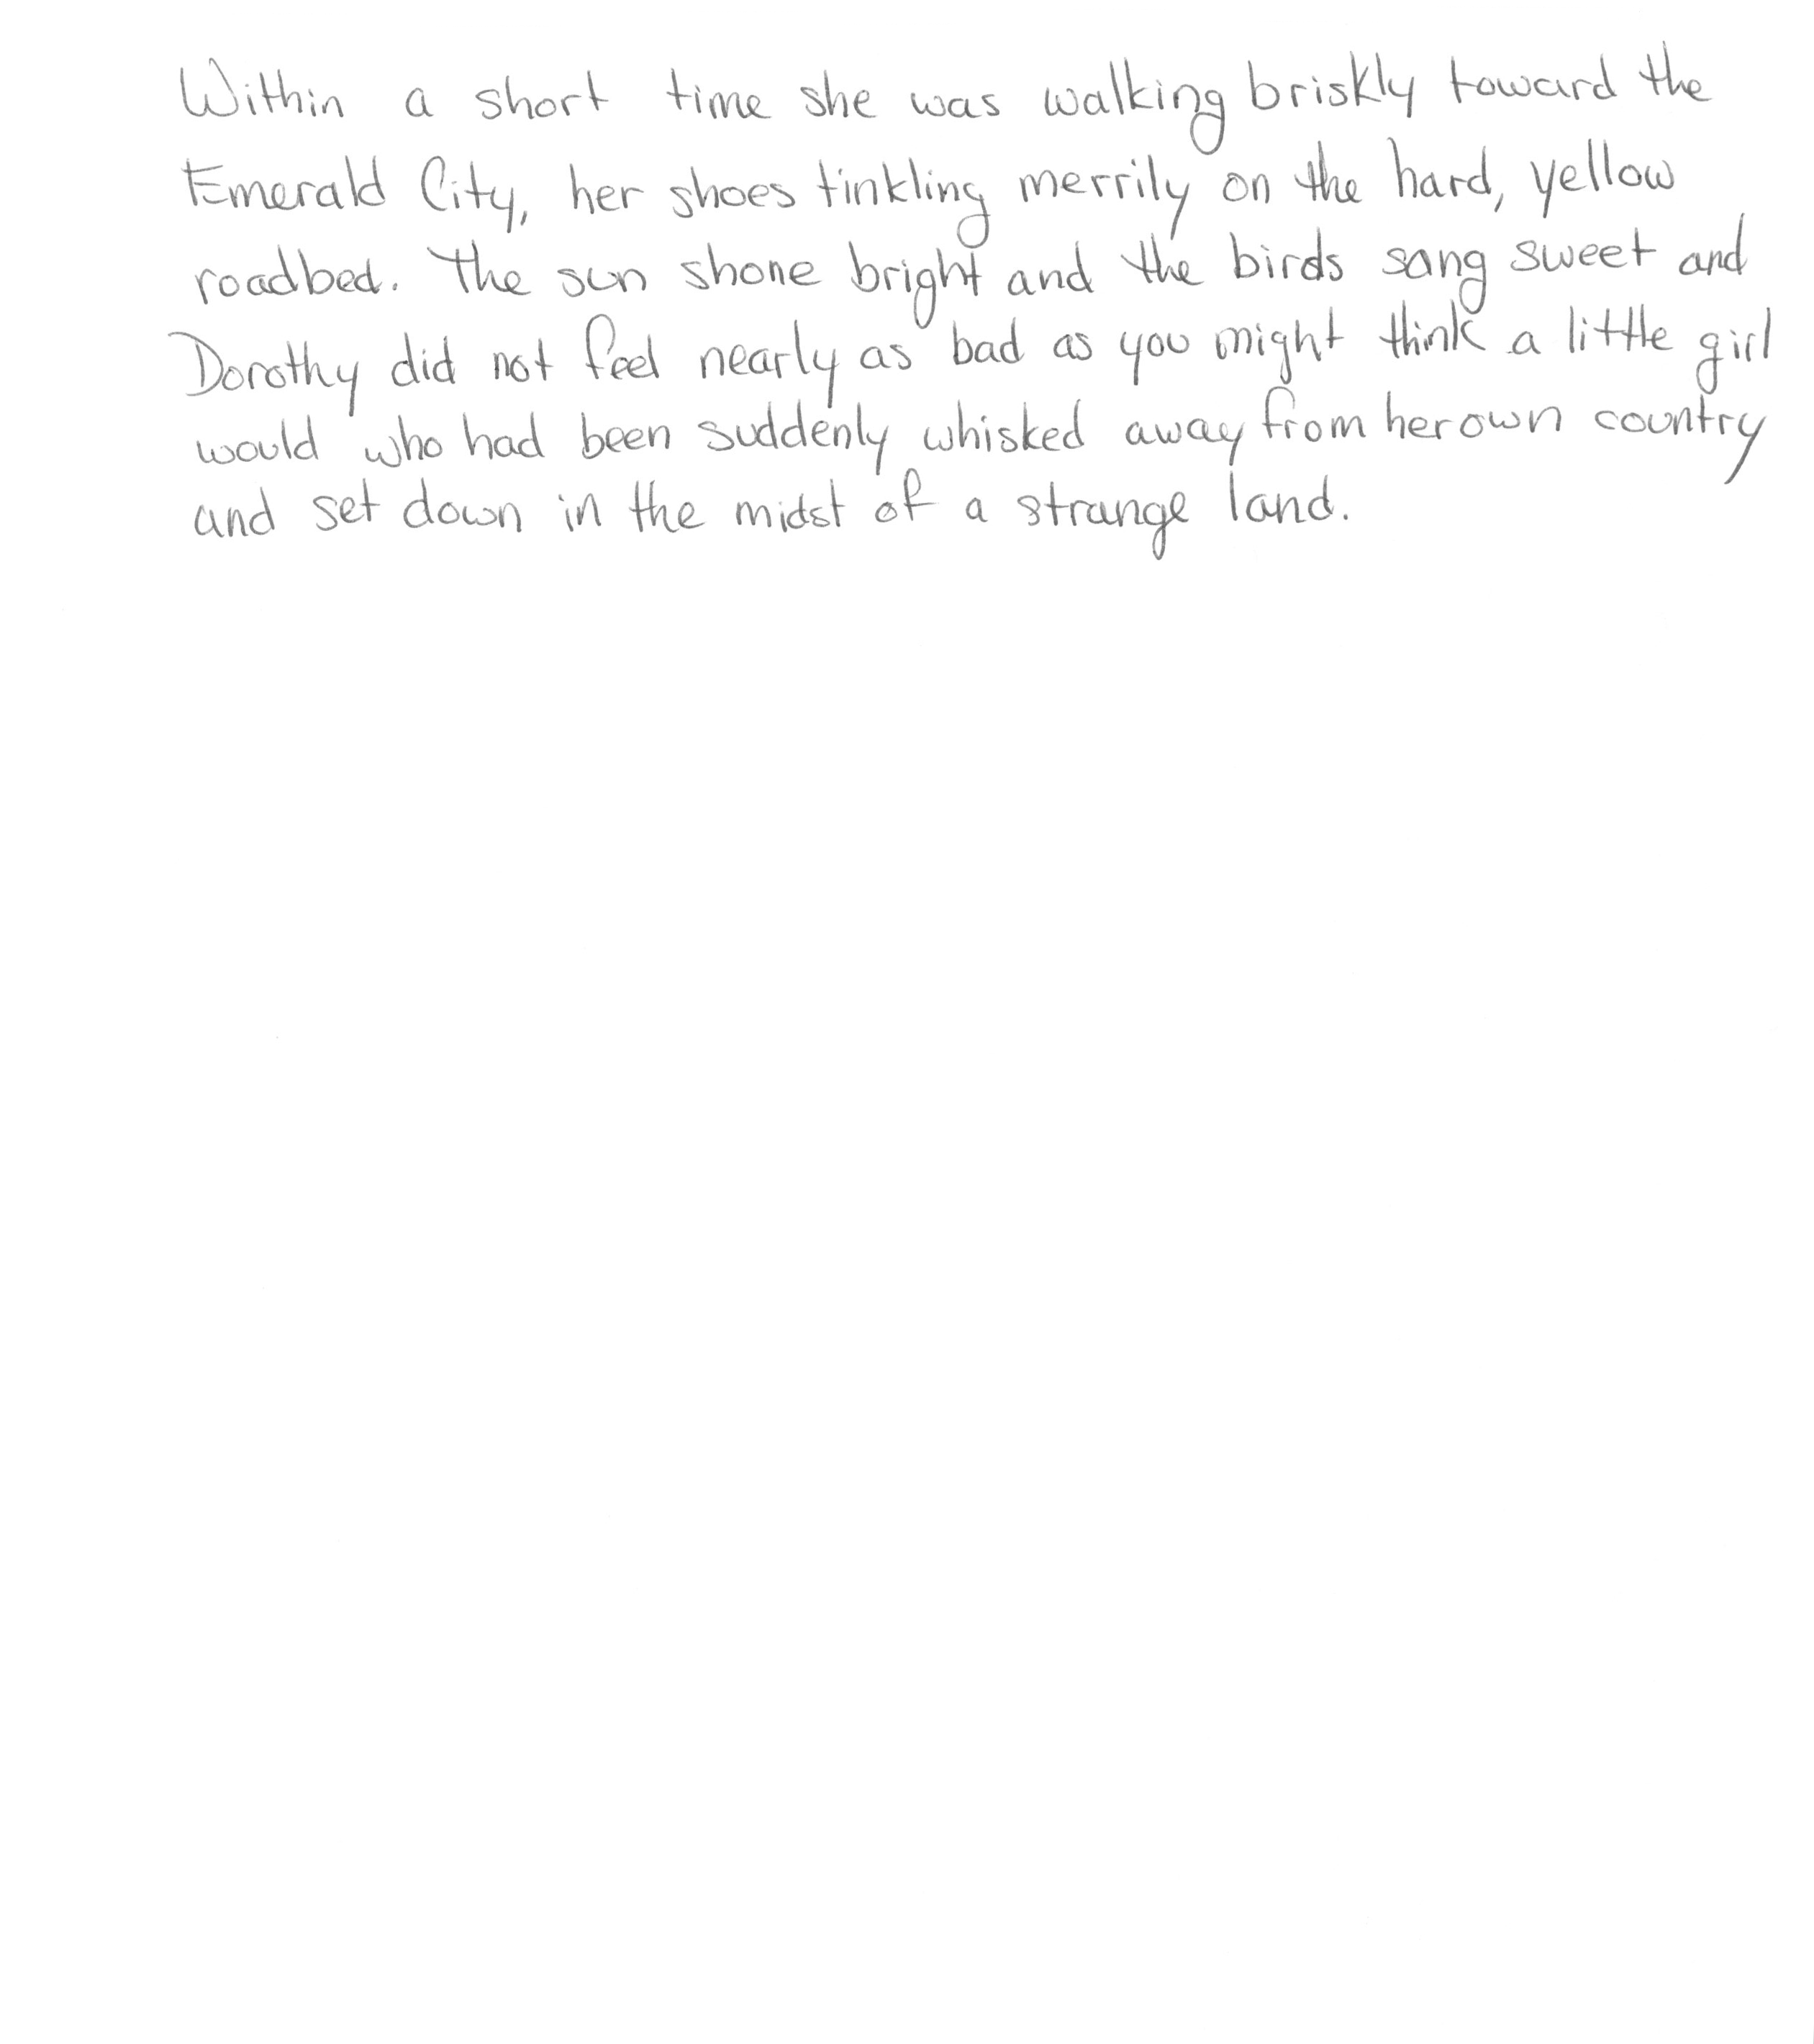 Within a short time she was walking briskly toward the
Emerald City, her shoes tinkling merrily on the hard, yellow
roadbed. The sun shone bright and the birds sang sweet and
Dorothy did not feel nearly as bad as you might think a little girl
would who had been suddenly whisked away from her own country
and set down in the midst of a strange land.